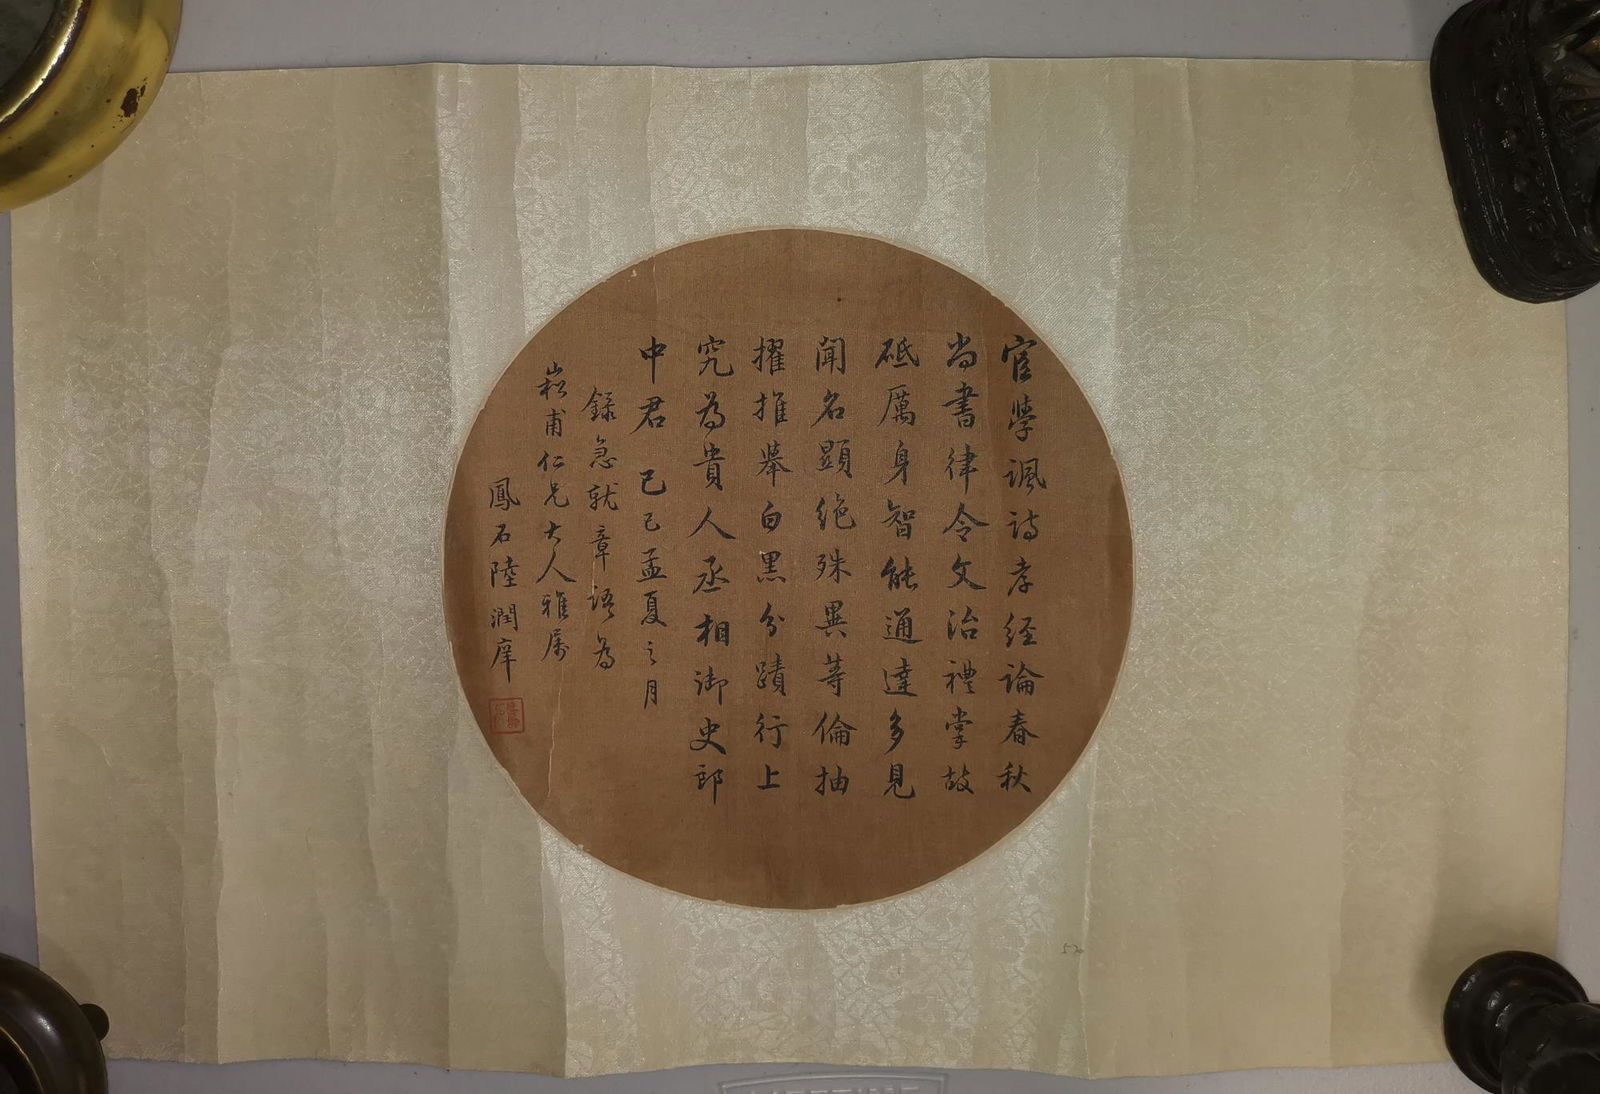 宦學諷詩孝經論春秋
尚書律令文治禮掌故
砥厲身智能通達多見
聞名顯絕殊異等倫抽
擢推舉白黑分蹟行上
究為貴人丞相御史郎
中君 己巳孟夏之月
錄急就章語為
崧甫仁兄大人雅属
鳳石陸潤庠
520